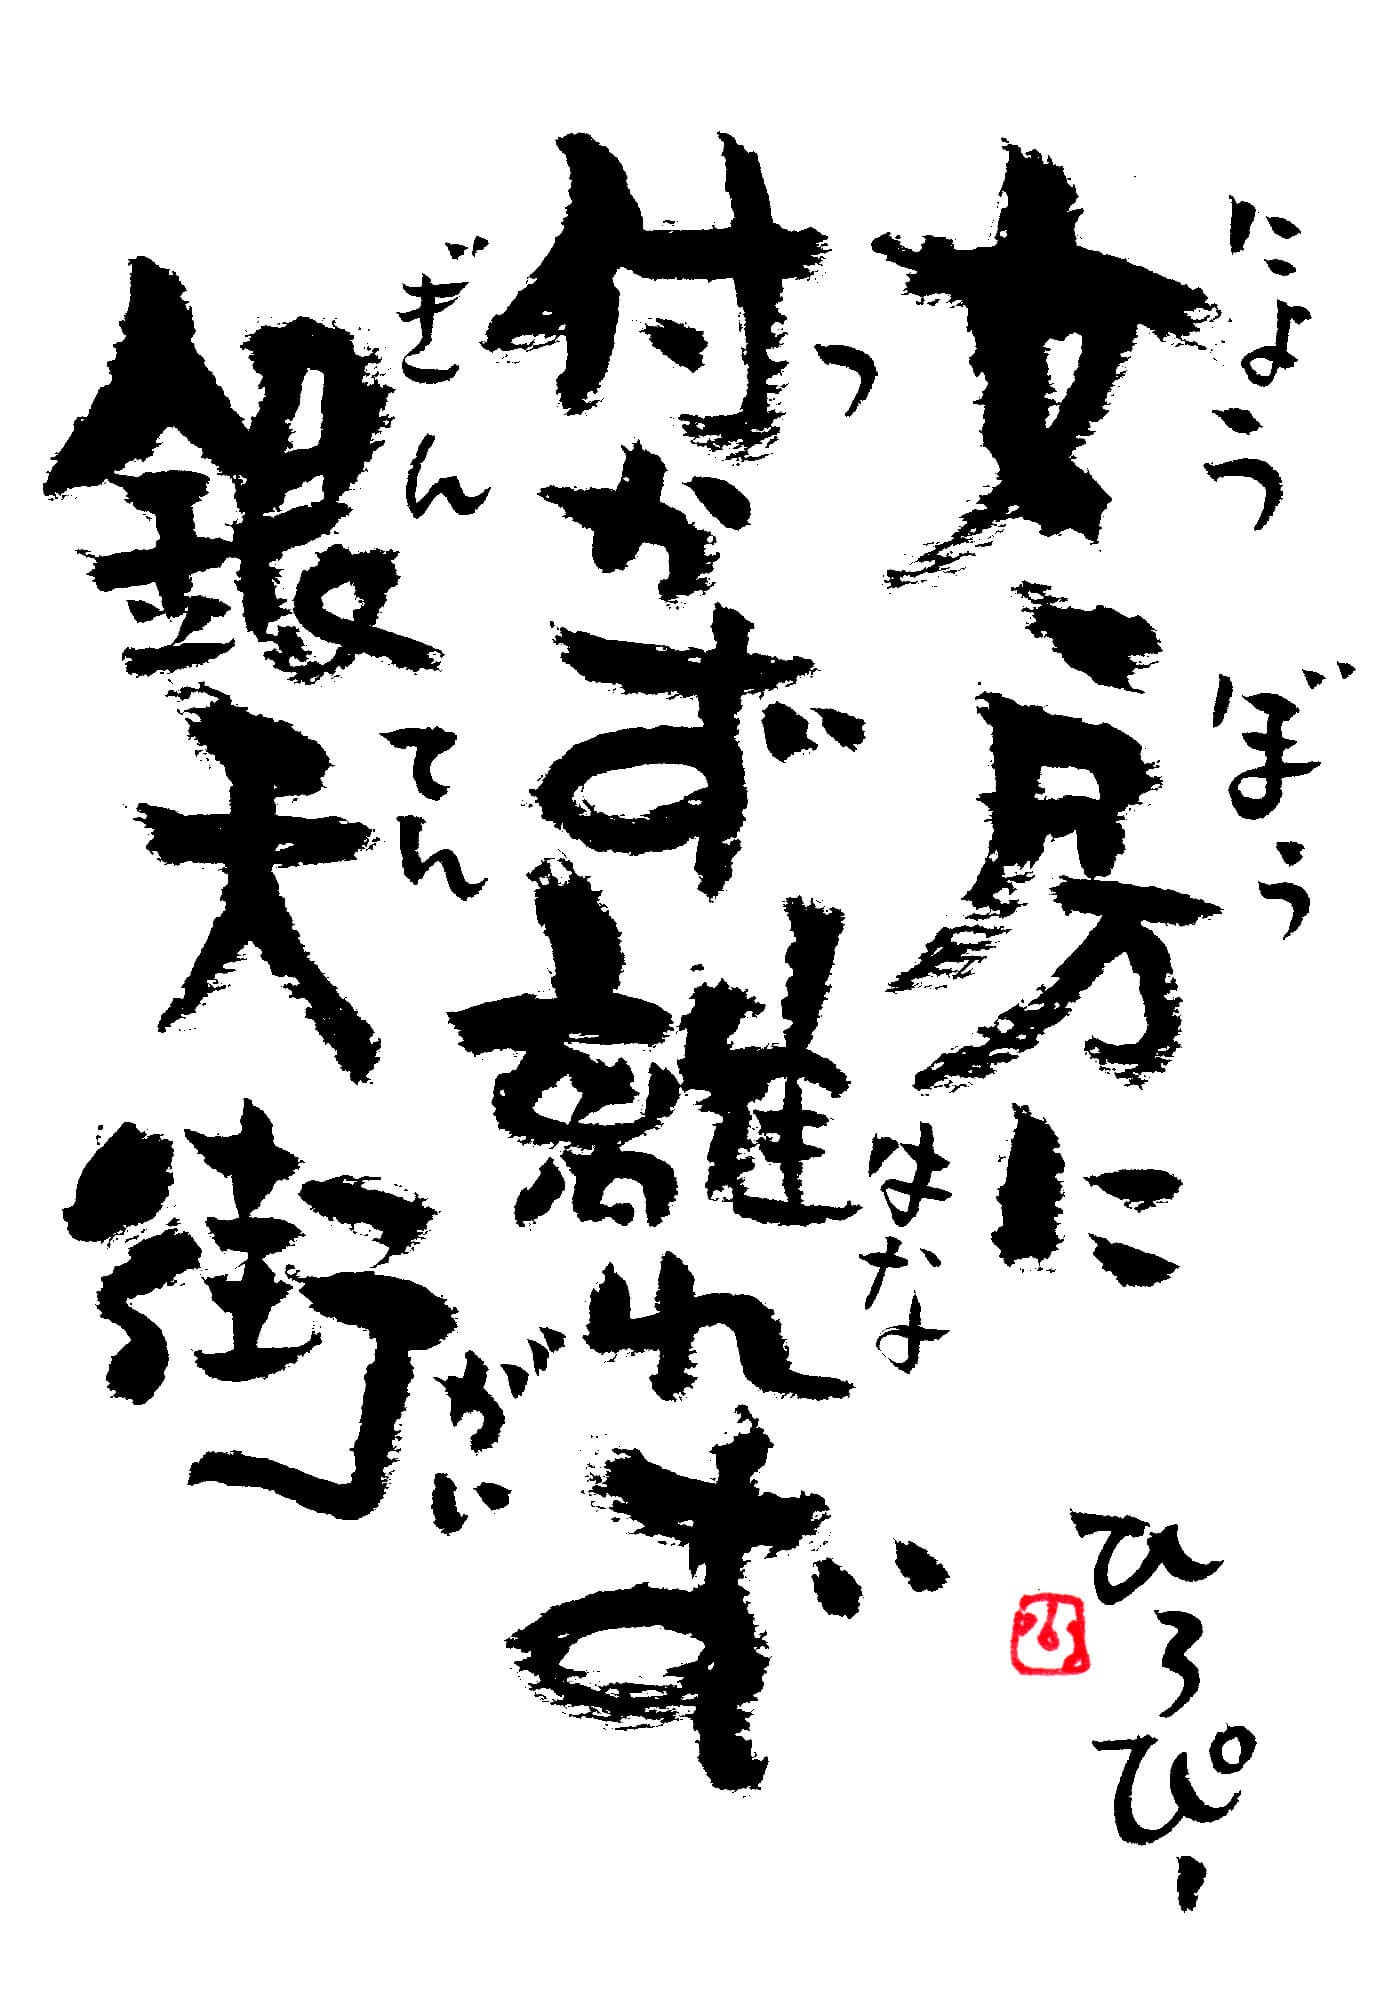 女房に
にょうぼう
付かず離れず
つ
はな
銀天街
ぎんてんがい
ひろぴー
ひ